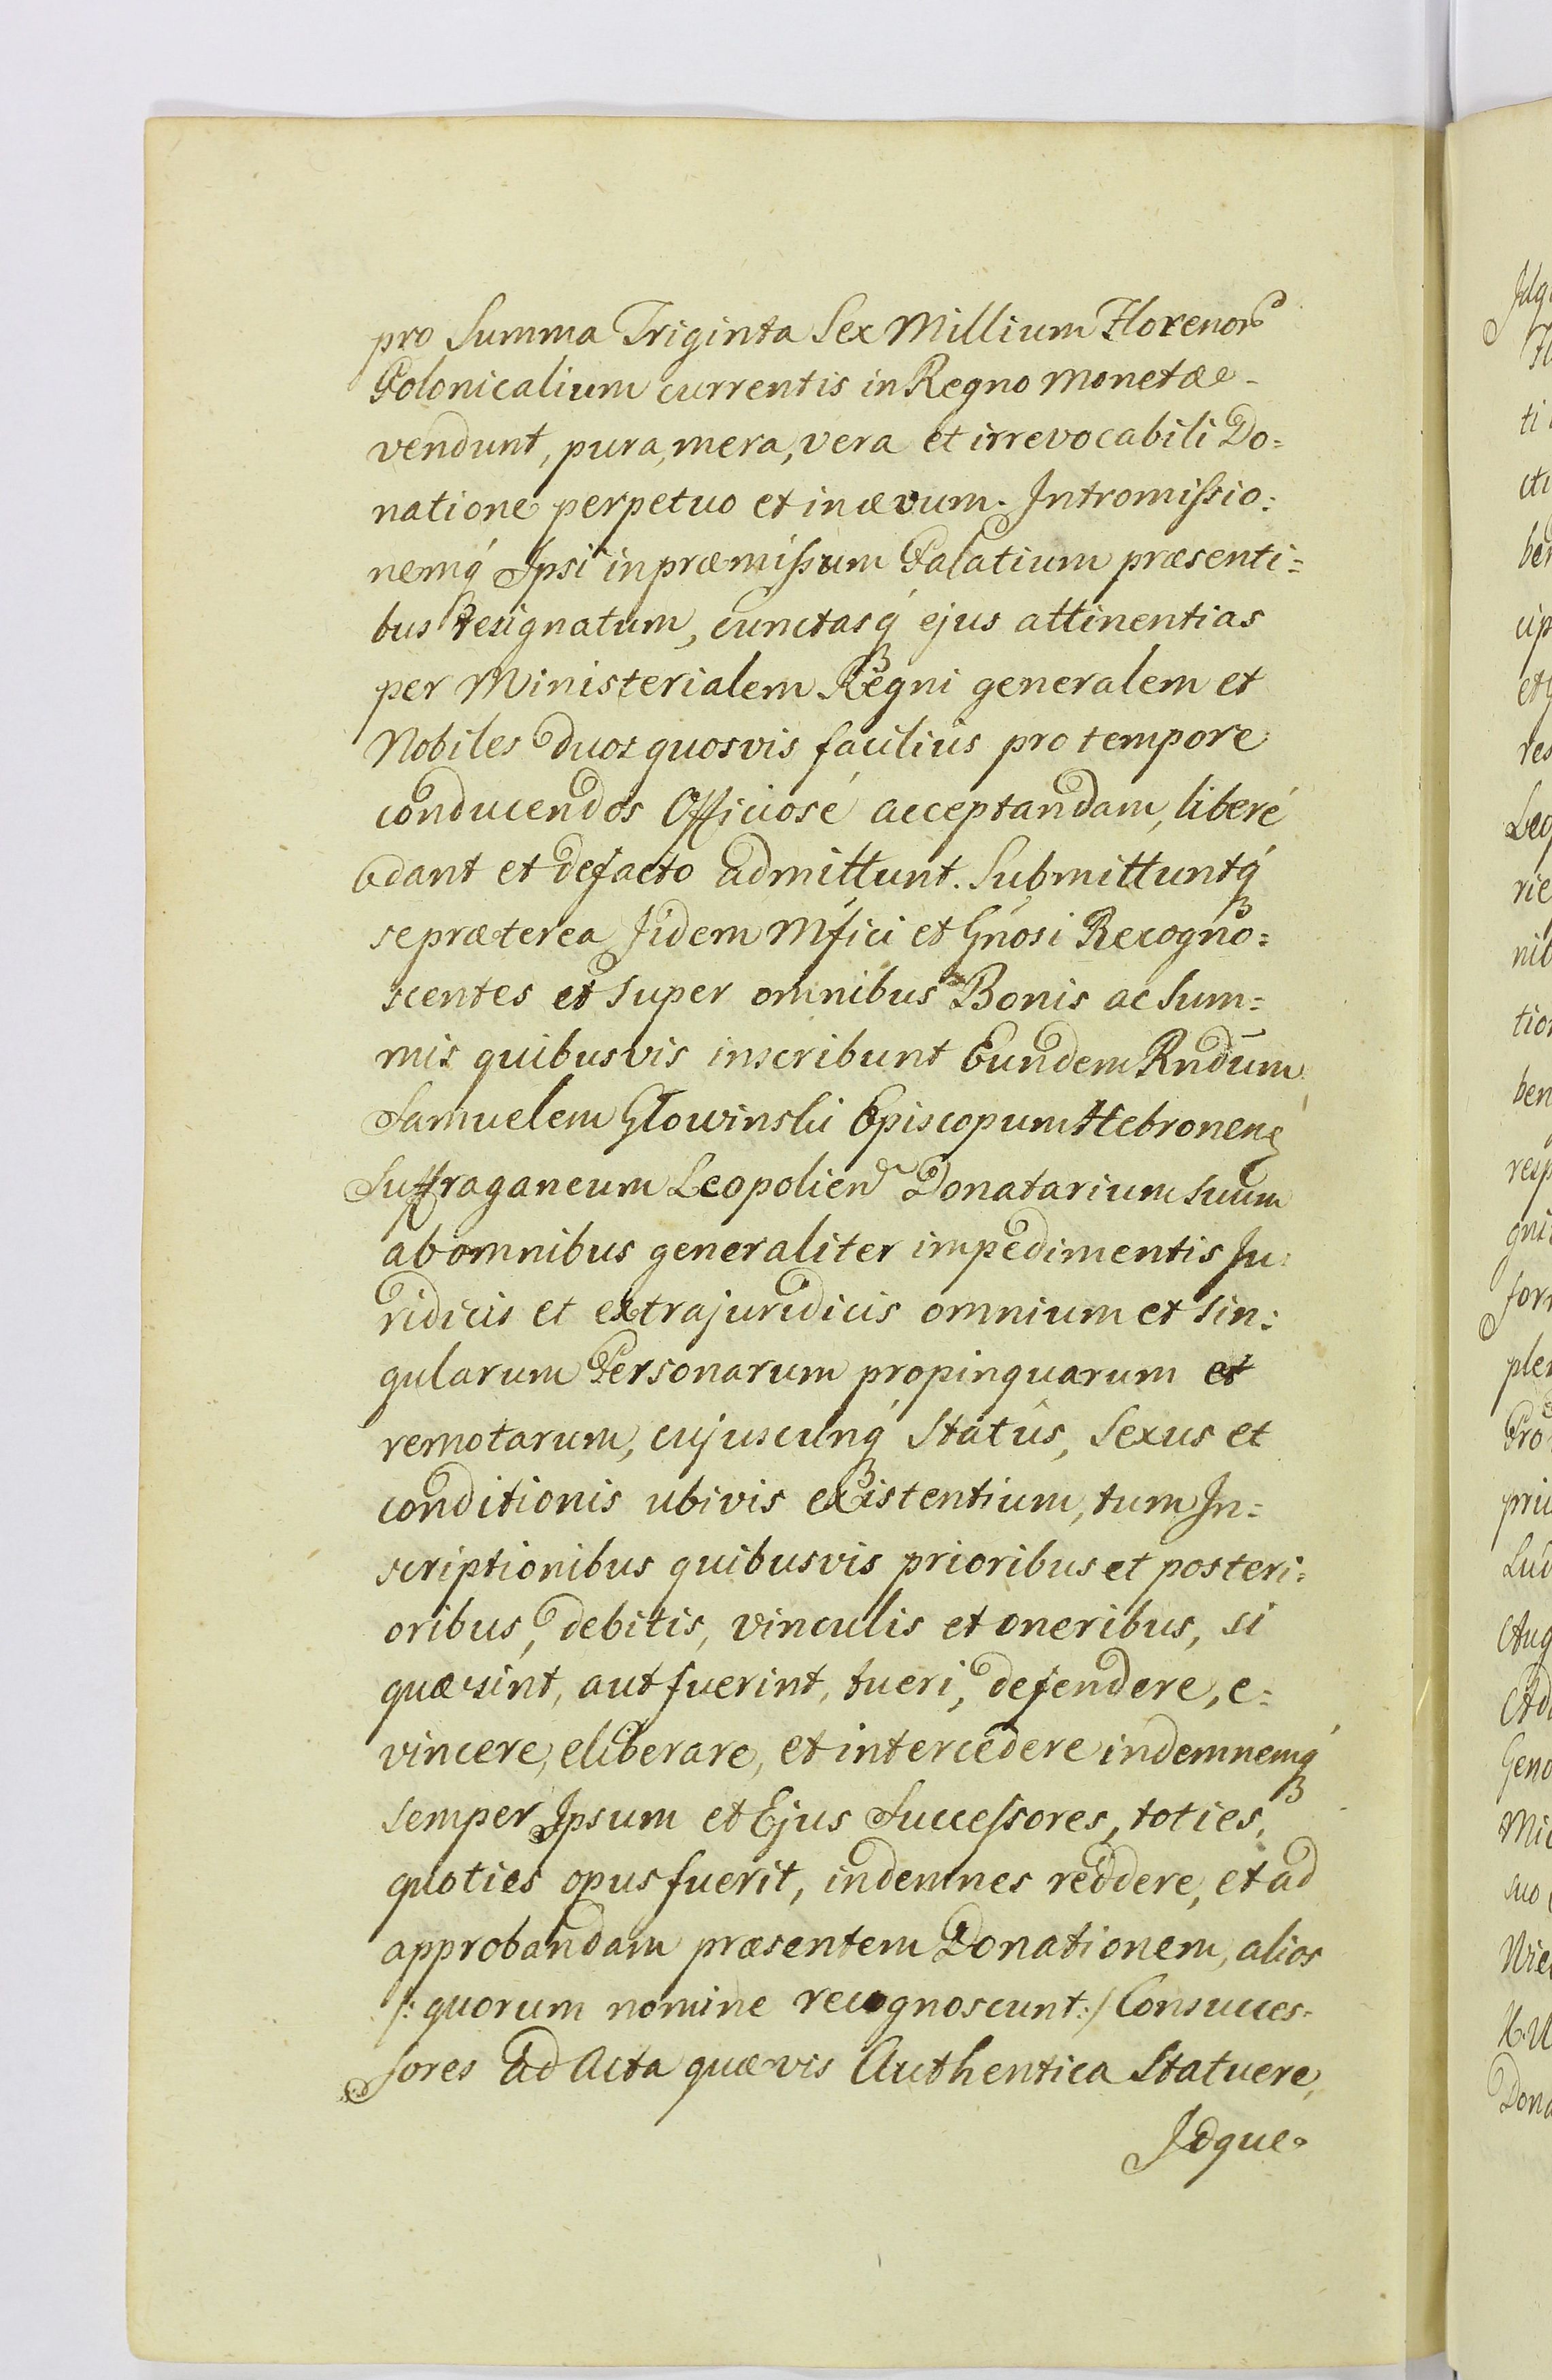 pro Summa Triginta Sex Millium Florenor
Polonicalium currentis in Regno Monetae
vendunt, pura, mera, vera et irrevocabili Do=
natione perpetuo et in aevum. Intromissio=
nemq́ Ipsi in praemissum Palatium praesenti=
bus designatum, cunctasq́ ejus attinentias
per Ministerialem Regni generalem et
Nobiles duos quosvis facilius pro tempore
conducendos Officiosé acceptandam, liberé
dant et defacto admittunt. Submittuntq́
se praeterea Jidem Mfici et Gnosi Recogno=
scentes et super omnibus Bonis ac Sum=
mis quibusvis inscribunt Eundem Rndum
Samuelem Głowinski Episcopum Hebronen
Suffraganeum Leopolien Donatarium suum
ab omnibus generaliter impedimentis Ju=
ridicis et extrajuridicis omnium et sin=
gularum Personarum propinquarum et
remotarum, cujuscunq́ Status, Sexus et
conditionis ubivis existentium, tum In=
scriptionibus quibusvis prioribus et posteri=
oribus, debitis, vinculis et oneribus, si
quae sint, aut fuerint, tueri, defendere, e=
vincere, eliberare, et intercedere indemnemq́
semper Ipsum et Ejus Successores, toties,
quoties opus fuerit, indemnes reddere, et ad
approbandam praesentem Donationem, alios
/: quorum nomine recognoscunt :/ Consucces=
sores ad Acta quaevis Authentica Statuere,
Idque